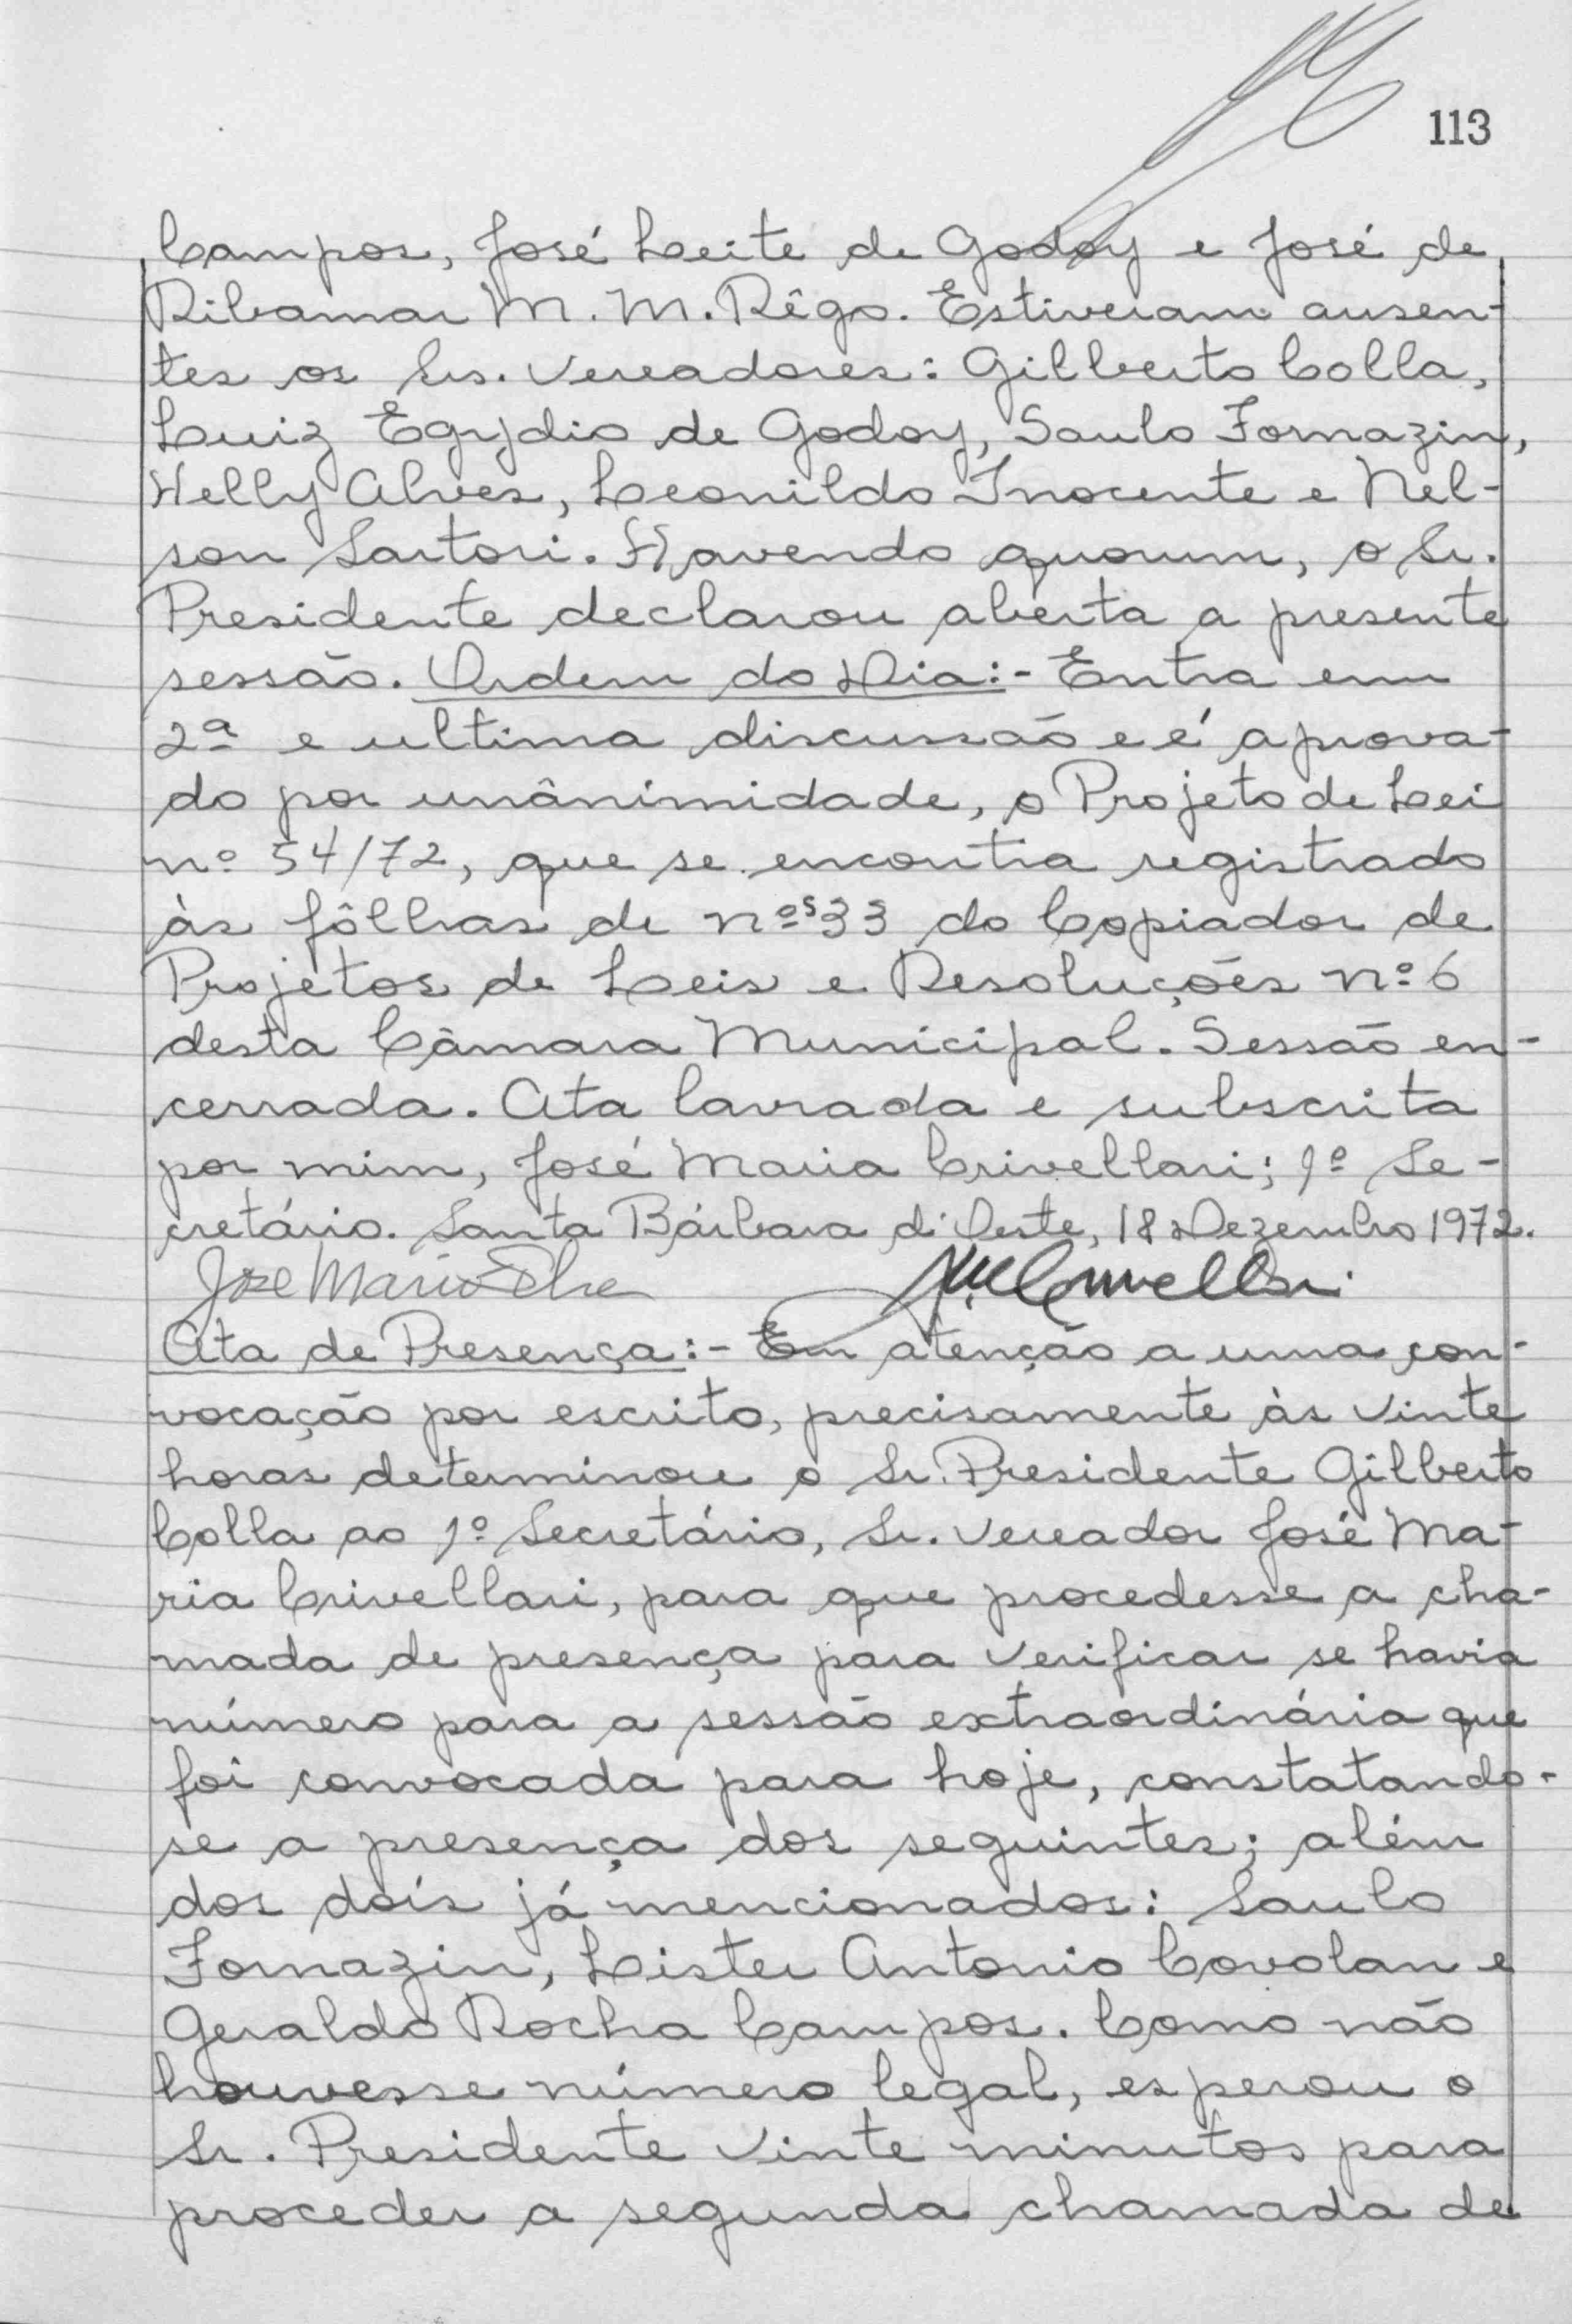 113
Campos, José Leite de Godoy e José de
Ribamar M. M. Rêgo. Estiveram ausen-
tes os Srs. Vereadores: Gilberto Colla,
Luiz Egydio de Godoy, Saulo Fornazin,
Welly Alves, Leonildo Inocente e Nel-
son Sartori. Havendo quorum, o Sr.
Presidente declarou aberta a presente
sessão. Ordem do Dia:- Entra em
2ª e ultima discussão e é aprova-
do por unânimidade, o Projeto de Lei
nº 54/72, que se encontra registrado
às fôlhas de nºs 33 do Copiador de
Projetos de Leis e Resoluções nº 6
desta Câmara Municipal. Sessão en-
cerrada. Ata lavrada e subscrita
por mim, José Maria Crivellari; 1º Se-
cretário. Santa Bárbara d'Oeste, 18 Dezembro 1972.
Ata de Presença:- Em atenção a uma con-
vocação por escrito, precisamente às vinte
horas determinou o Sr. Presidente Gilberto
Colla ao 1º Secretário, Sr. Vereador José Ma-
ria Crivellari, para que procedesse a cha-
mada de presença para verificar se havia
número para a sessão extraordinária que
foi convocada para hoje, constatando-
se a presença dos seguintes; além
dos dois já mencionados: Saulo
Fornazin, Lister Antonio Covolan e
Geraldo Rocha Campos. Como não
houvesse número legal, esperou o
Sr. Presidente vinte minutos para
proceder a segunda chamada de